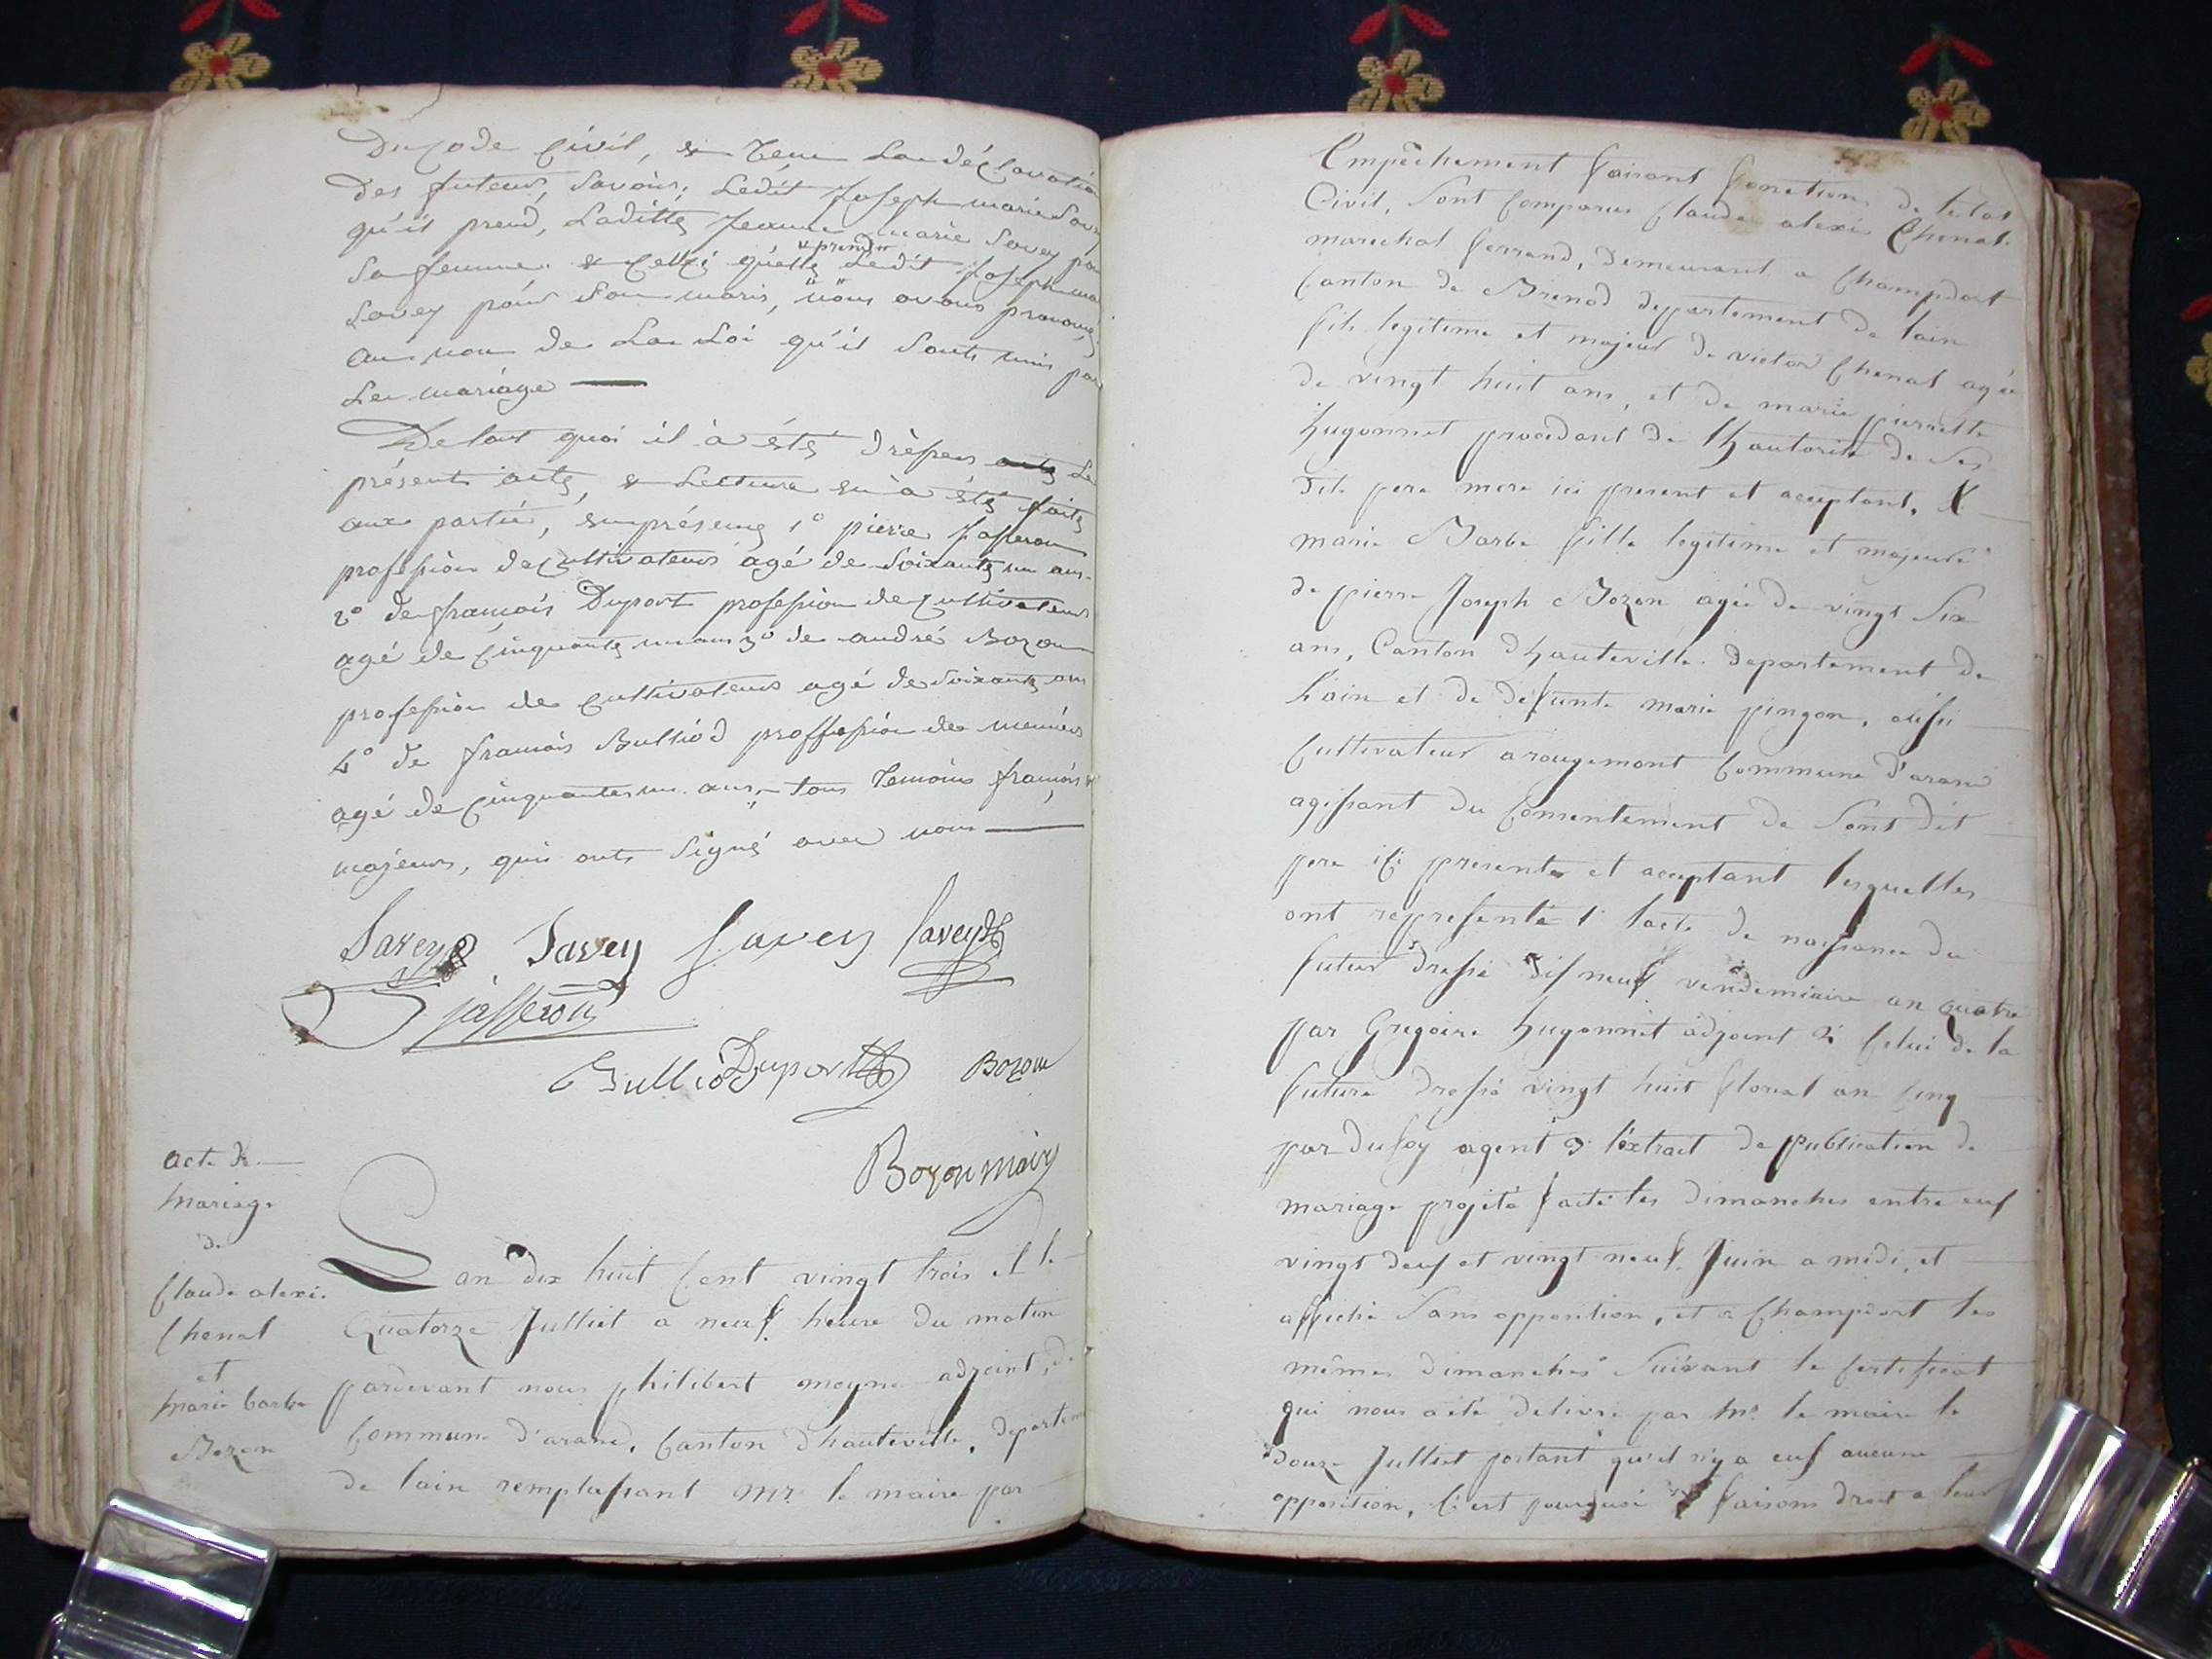 Du Code Civil, & Reçu La déClaration
Des futeurs, Savoirs; Ledit Joseph marie Savey
qu'il prend, Laditte Jeanne marie Savey pour
sa femme. & Celle qu'elle prend Ledit Joseph marie
Savey pour Son maris, nous avons prononcé
au nom de La Loi qu'il Sonts unis par
Le mariage —
De tout quoi il à étés drèssers acte Le
présent acte, & Lecture en à été faite
aux partie, en présence 1° pierre Jasseron
profession de Cultivateurs agé de Soixante un ans.
2° de françois Duport profession de Cultivateurs
agé de Cinquante un ans 3° de andré Bozon
profession de Cultivateurs agé de Soixante ans
4° de françois Bulliod proffession de meuniers
agé de Cinquante un ans, tous temoins françois &
majeurs, qui onts Signé avec nous —
Savey Savey Savey Savey
jasseron
Bulliod Duport Bozon
Bozon maire
acte de
mariage
de
Claude alexi.
Chenal
et
marie barbe
Bozon
Lan dix huit Cent vingt trois et le
Quatorze Julliet a neuf heure du matin
pardevant nous philibert moyne adjoint, de
Commune d'arand, Canton d'hauteville, departem
de lain remplassant mr. le maire par
Empêchement faisant fonction de letat
Civil, Sont Comparus Claude alexi Chenal.
marechal ferrand, Demeurant a Champdort
Canton de Brenod departement de lain
fils legitime et majeur de victor Chenal agée
de vingt huit ans, et de marie pierrette
hugonnet procedant de lhautorité de Ses
dit pere mere ici present et aceptant, &
marie Barbe fille legitime et majeure
de pierre Joseph Bozon agée de vingt Six
ans, Canton dhauteville. Departement de
lain et de defunte marie pingon, aussi
Cultivateur a rougemont Commune d'arand
agissant du Consentement de Sont dit
pere ici presente et aceptant lesquelles
ont representé 1° lacte de naissance du
futur dressé dis neuf vendemiaire an quatre
par Gregoire hugonnet adjoint 2° Celui de la
future dressé vingt huit floreal an Cinq
par Dufoy agent 3° lextrait de publication de
mariage projeté facte les dimanches entre euf
vingt deuf et vingt neuf Juin a midi, et
affiché Sans opposition, et a Champdort les
mêmes dimanches Suivant le Certificat
qui nous a été delivré par mr. le maire le
douze Julliet portant qu'il n'y a euf aucune
opposition, C'est pourquoi faisons droit a leur